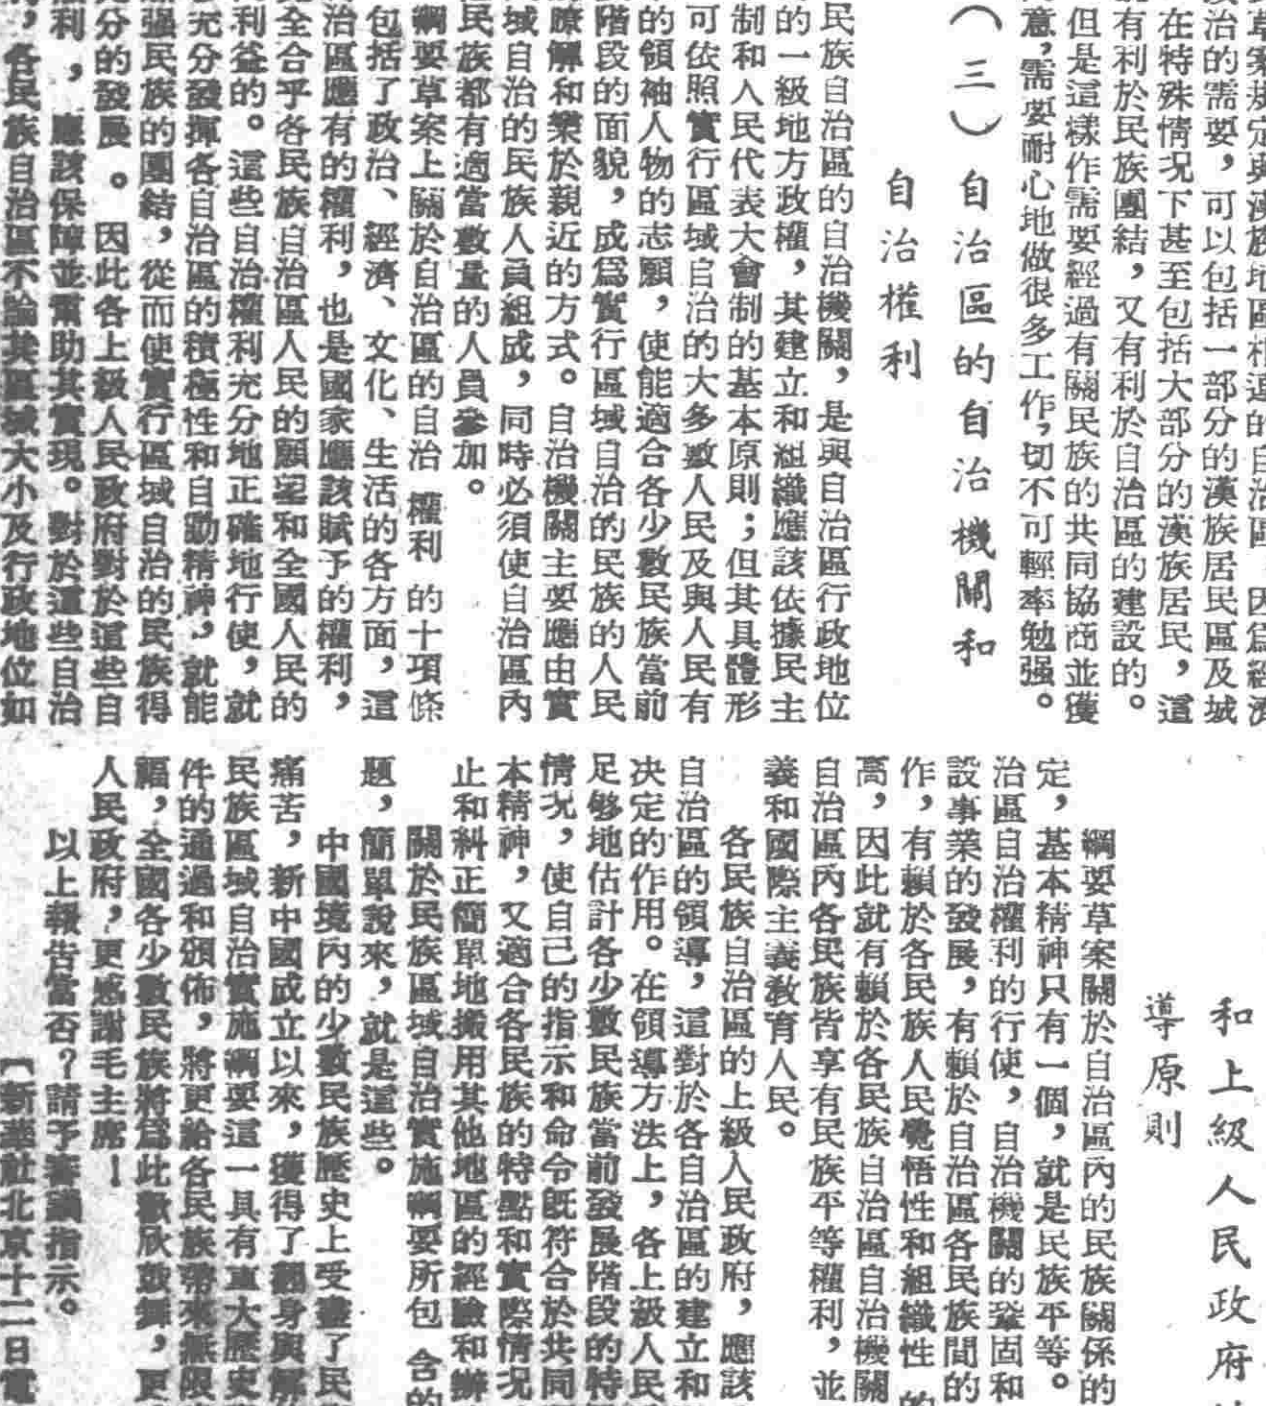 草案規定與漢族地區相連的自治區,因爲經濟
治的需要,可以包括一部分的漢族居民區及城
在特殊情况下甚至包括大部分的漢族居民,這
有利於民族團結,又有利於自治區的建設的。
但是這樣作需要經過有關民族的共同協商並獲
意,需要耐心地做很多工作,切不可輕率勉强。
(三)自治區的自治機關和
自治權利
民族自治區的自治機關,是與自治區行政地位
的一級地方政權,其建立和組織應該依據民主
制和人民代表大會制的基本原則;但其具體形
可依照實行區域自治的大多數人民及與人民有
的領袖人物的志願,使能適合各少數民族當前
階段的面貌,成爲實行區域自治的民族的人民
瞭解和樂於親近的方式。自治機關主要應由實
域自治的民族人員組成,同時必須使自治區內
民族都有適當數量的人員參加。
綱要草案上關於自治區的自治權利的十項條
包括了政治、經濟、文化、生活的各方面,這
治區應有的權利,也是國家應該賦予的權利,
完全合乎各民族自治區人民的願望和全國人民的
利益的。這些自治權利充分地正確地行使,就
充分發揮各自治區的積極性和自動精神,就能
强民族的團結,從而使實行區域自治的民族得
分的發展。因此各上級人民政府對於這些自
利,應該保障並幫助其實現。對於這些自治
,各民族自治區不論其區域大小及行政地位如
和上級人民政府
導原則
綱要草案關於自治區內的民族關係的
定,基本精神只有一個,就是民族平等。
治區自治權利的行使,自治機關的鞏固和
設事業的發展,有賴於自治區各民族間的
作,有賴於各民族人民覺悟性和組織性的
高,因此就有賴於各民族自治區自治機關
自治區內各民族皆享有民族平等權利,並
義和國際主義敎育人民。
各民族自治區的上級人民政府,應該
自治區的領導,這對於各自治區的建立和
决定的作用。在領導方法上,各上級人民
足够地估計各少數民族當前發展階段的特
情况,使自己的指示和命令旣符合於共同
本精神,又適合各民族的特點和實際情况
止和糾正簡單地搬用其他地區的經驗和辦
關於民族區域自治實施綱要所包含的
題,簡單說來,就是這些。
中國境內的少數民族歷史上受盡了民
痛苦,新中國成立以來,獲得了翻身與解
民族區域自治實施綱要這一具有重大歷史
件的通過和頒佈,將更給各民族帶來無限
福,全國各少數民族將爲此歡欣鼓舞,更
人民政府,更感謝毛主席!
以上報告當否?請予審議指示。
【新華社北京十二日電